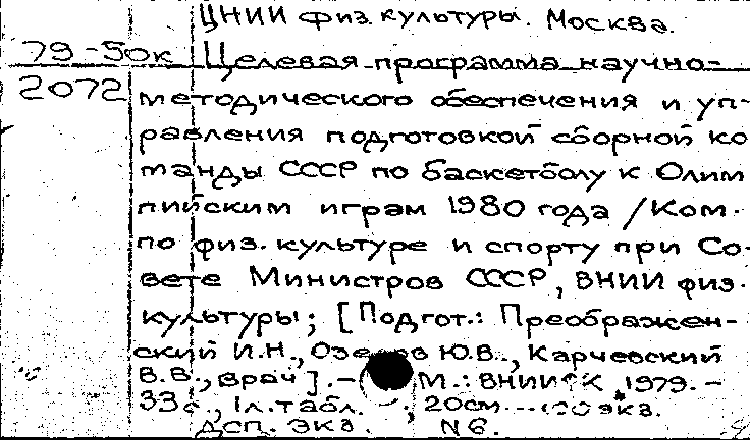 ЦНИИ физ. культуры. Москва.
79-50к Целевая программа научно-
2072 методического обеспечения и уп-
равления подготовкой сборной ко
манды СССР по баскетболу к Олим
пийским играм 1980 года /Ком.
по физ. культуре и спорту при Со-
вете Министров СССР, ВНИИ физ.
культуры; [Подгот.: Преображен-
ский И.Н., Ю.В., Карчевский
В.В., врач]. - М.: 1979. -
33с., 1л. табл. ; 20см. экз.
ДСП. Экз. N 6.